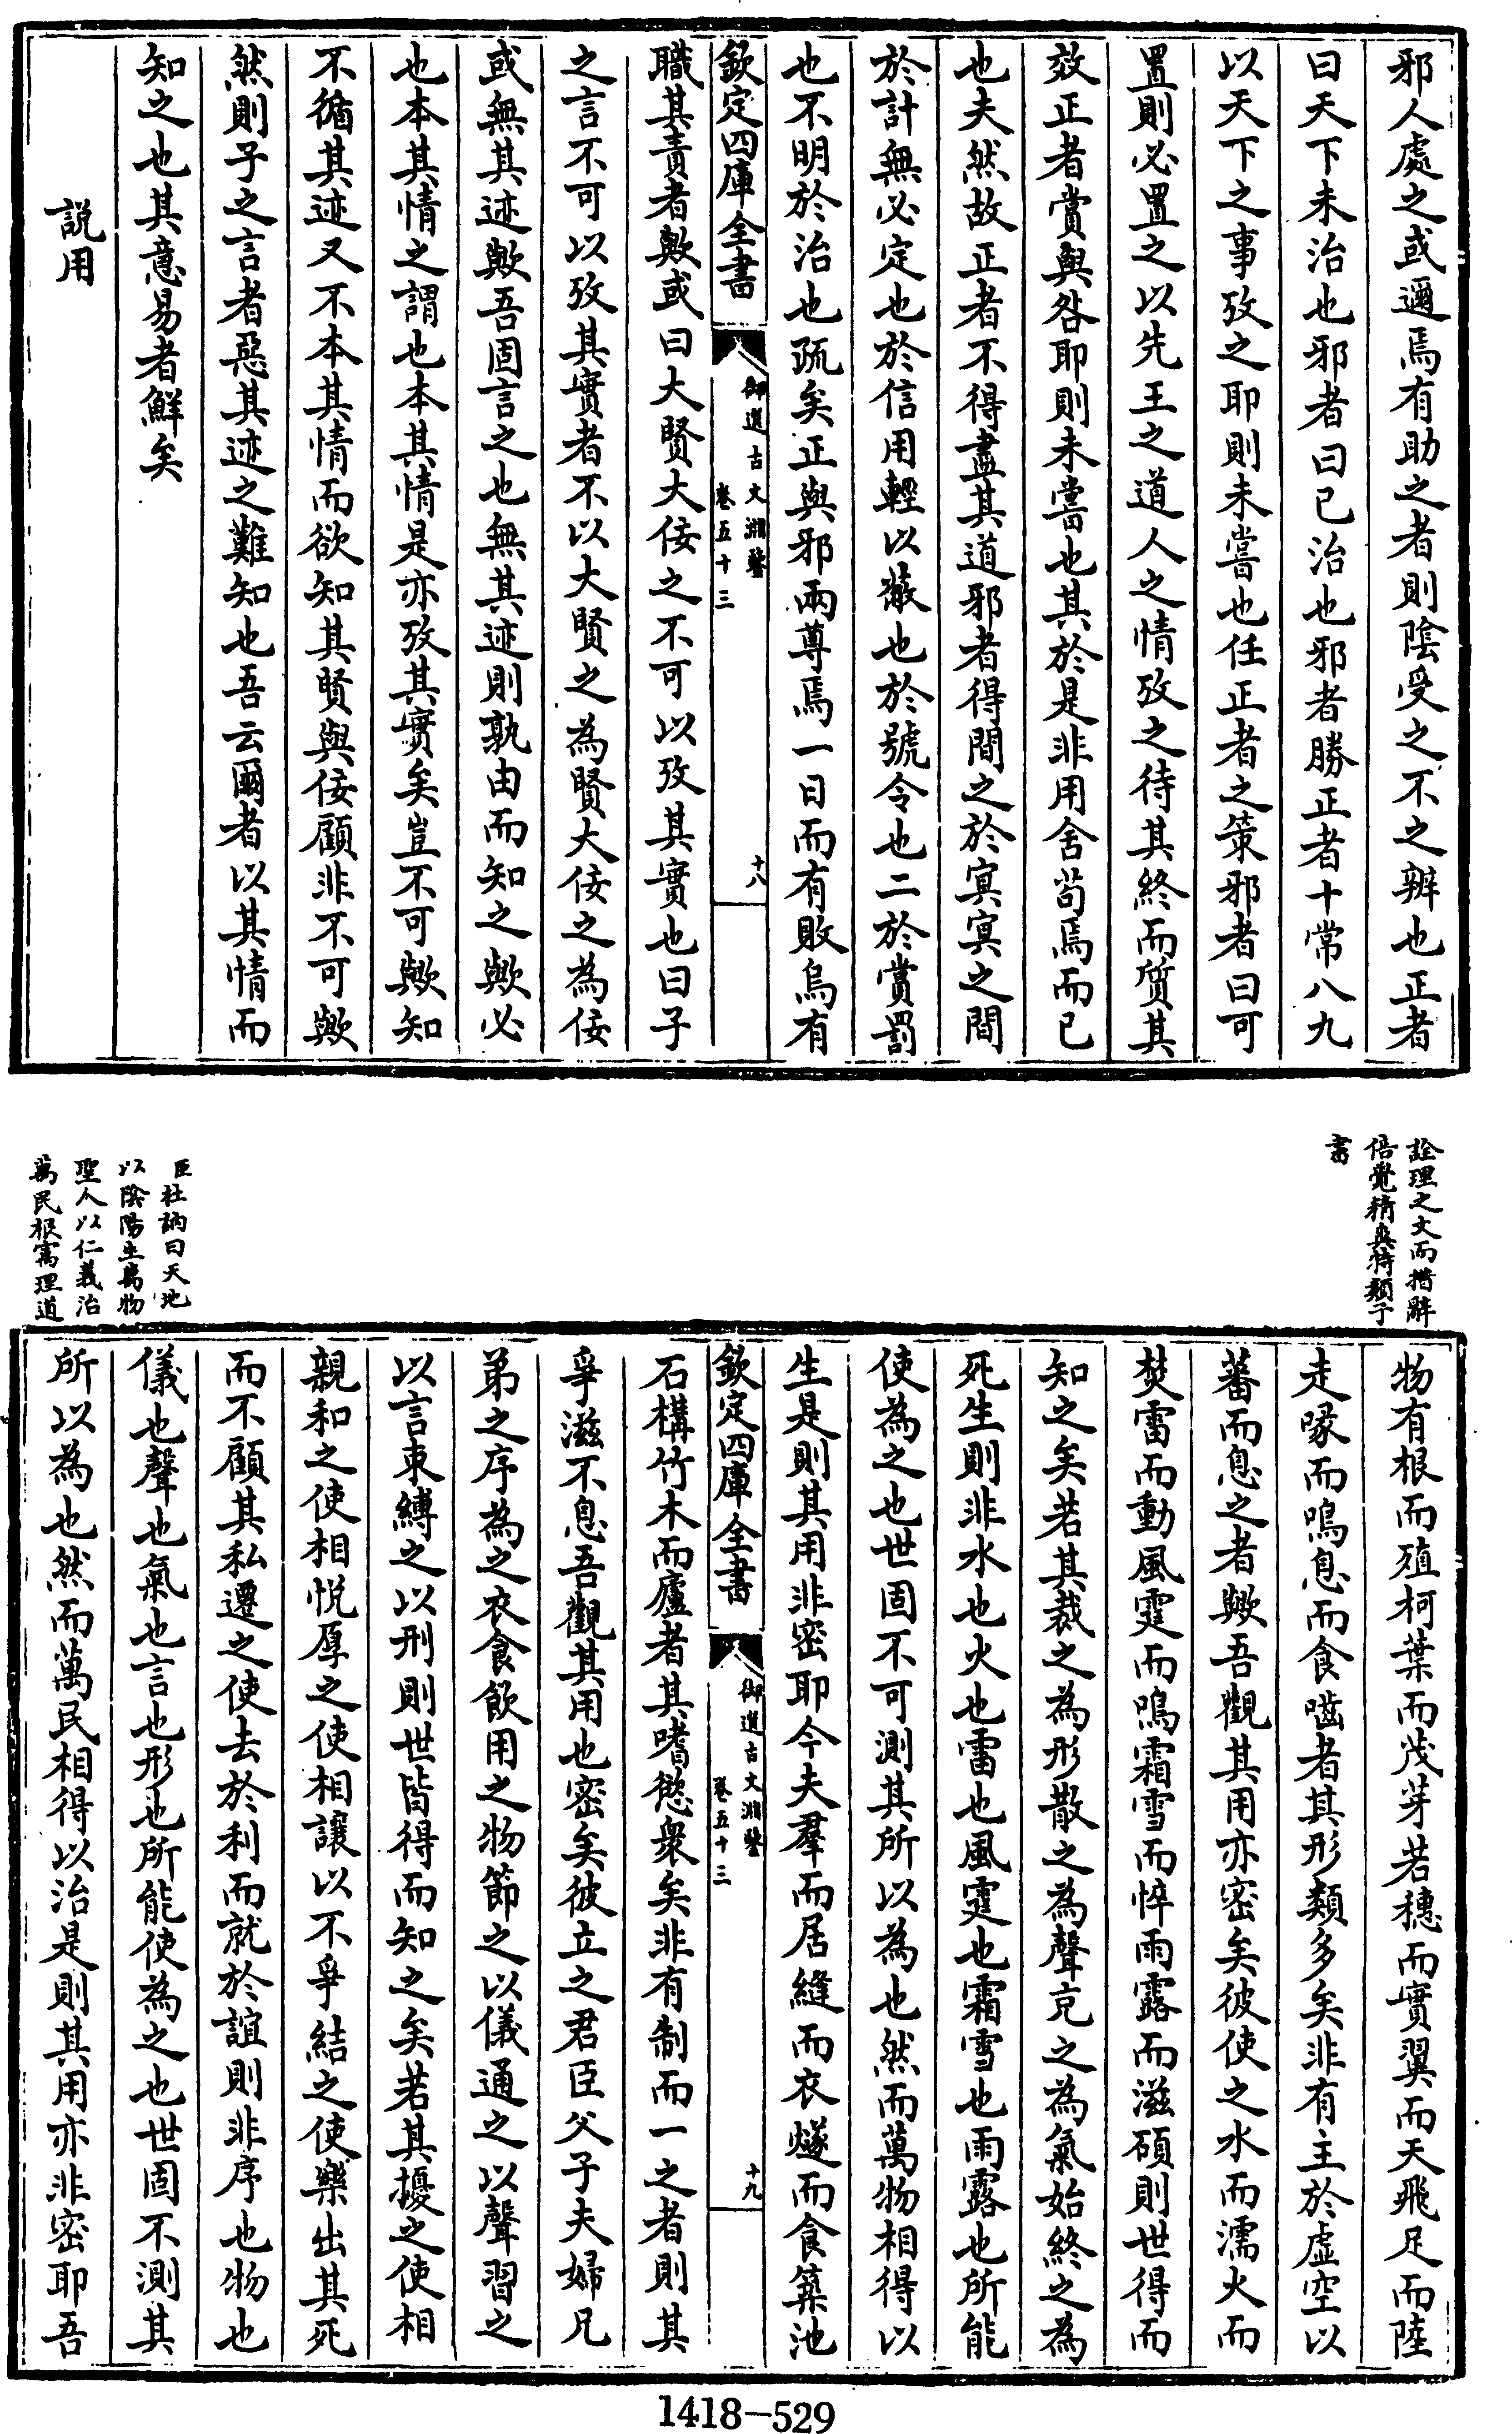 邪人處之或邇焉有助之者則陰受之不之辨也正者
曰天下未治也邪者曰已治也邪者勝正者十常八九
以天下之事攷之耶則未嘗也任正者之策邪者曰可
置則必置之以先王之道人之情攷之待其終而質其
效正者賞與咎耶則未嘗也其於是非用舍茍焉而已
也夫然故正者不得盡其道邪者得間之於㝠㝠之間
於計無必定也於信用輕以蔽也於號令也二於賞罰
也不明於治也疏矣正與邪兩尊焉一日而有敗烏有
欽定四庫全書
御選古文淵鑒
卷五十三
十八
職其責者歟或曰大賢大佞之不可以攷其實也曰子
之言不可以攷其實者不以大賢之為賢大佞之為佞
或無其迹歟吾固言之也無其迹則孰由而知之歟必
也本其情之謂也本其情是亦攷其實矣豈不可歟知
不循其迹又不本其情而欲知其賢與佞顧非不可歟
然則子之言者惡其迹之難知也吾云爾者以其情而
知之也其意易者鮮矣
說用
詮理之文而措辭
倍覺精奥特類子
書
物有根而殖柯葉而茂芽若穗而實翼而天飛足而陸
走喙而鳴息而食嚙者其形類多矣非有主於虛空以
蕃而息之者歟吾觀其用亦密矣彼使之水而濡火而
焚雷而動風霆而鳴霜雪而悴雨露而滋碩則世得而
知之矣若其裁之為形散之為聲克之為氣始終之為
死生則非水也火也雷也風霆也霜雪也雨露也所能
使為之也世固不可測其所以為也然而萬物相得以
生是則其用非密耶今夫羣而居縫而衣燧而食築池
欽定四庫全書
御選古文淵鑒
卷五十三
十九
石構竹木而廬者其嗜慾衆矣非有制而一之者則其
爭滋不息吾觀其用也密矣彼立之君臣父子夫婦兄
弟之序為之衣食飲用之物節之以儀通之以聲習之
以言束縛之以刑則世皆得而知之矣若其擾之使相
親和之使相悅厚之使相讓以不爭結之使樂出其死
而不顧其私遷之使去於利而就於誼則非序也物也
儀也聲也氣也言也形也所能使為之也世固不測其
所以為也然而萬民相得以治是則其用亦非密耶吾
臣杜訥曰天地
以陰陽生萬物
聖人以仁義治
萬民根窩理道
1418-529